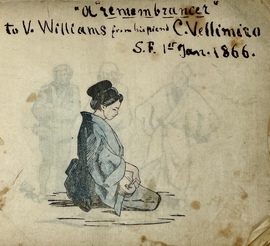 "A "remembrancer"
to V. Williams from his friend C. Vellimiro
S. F. 1st Jan. 1866.